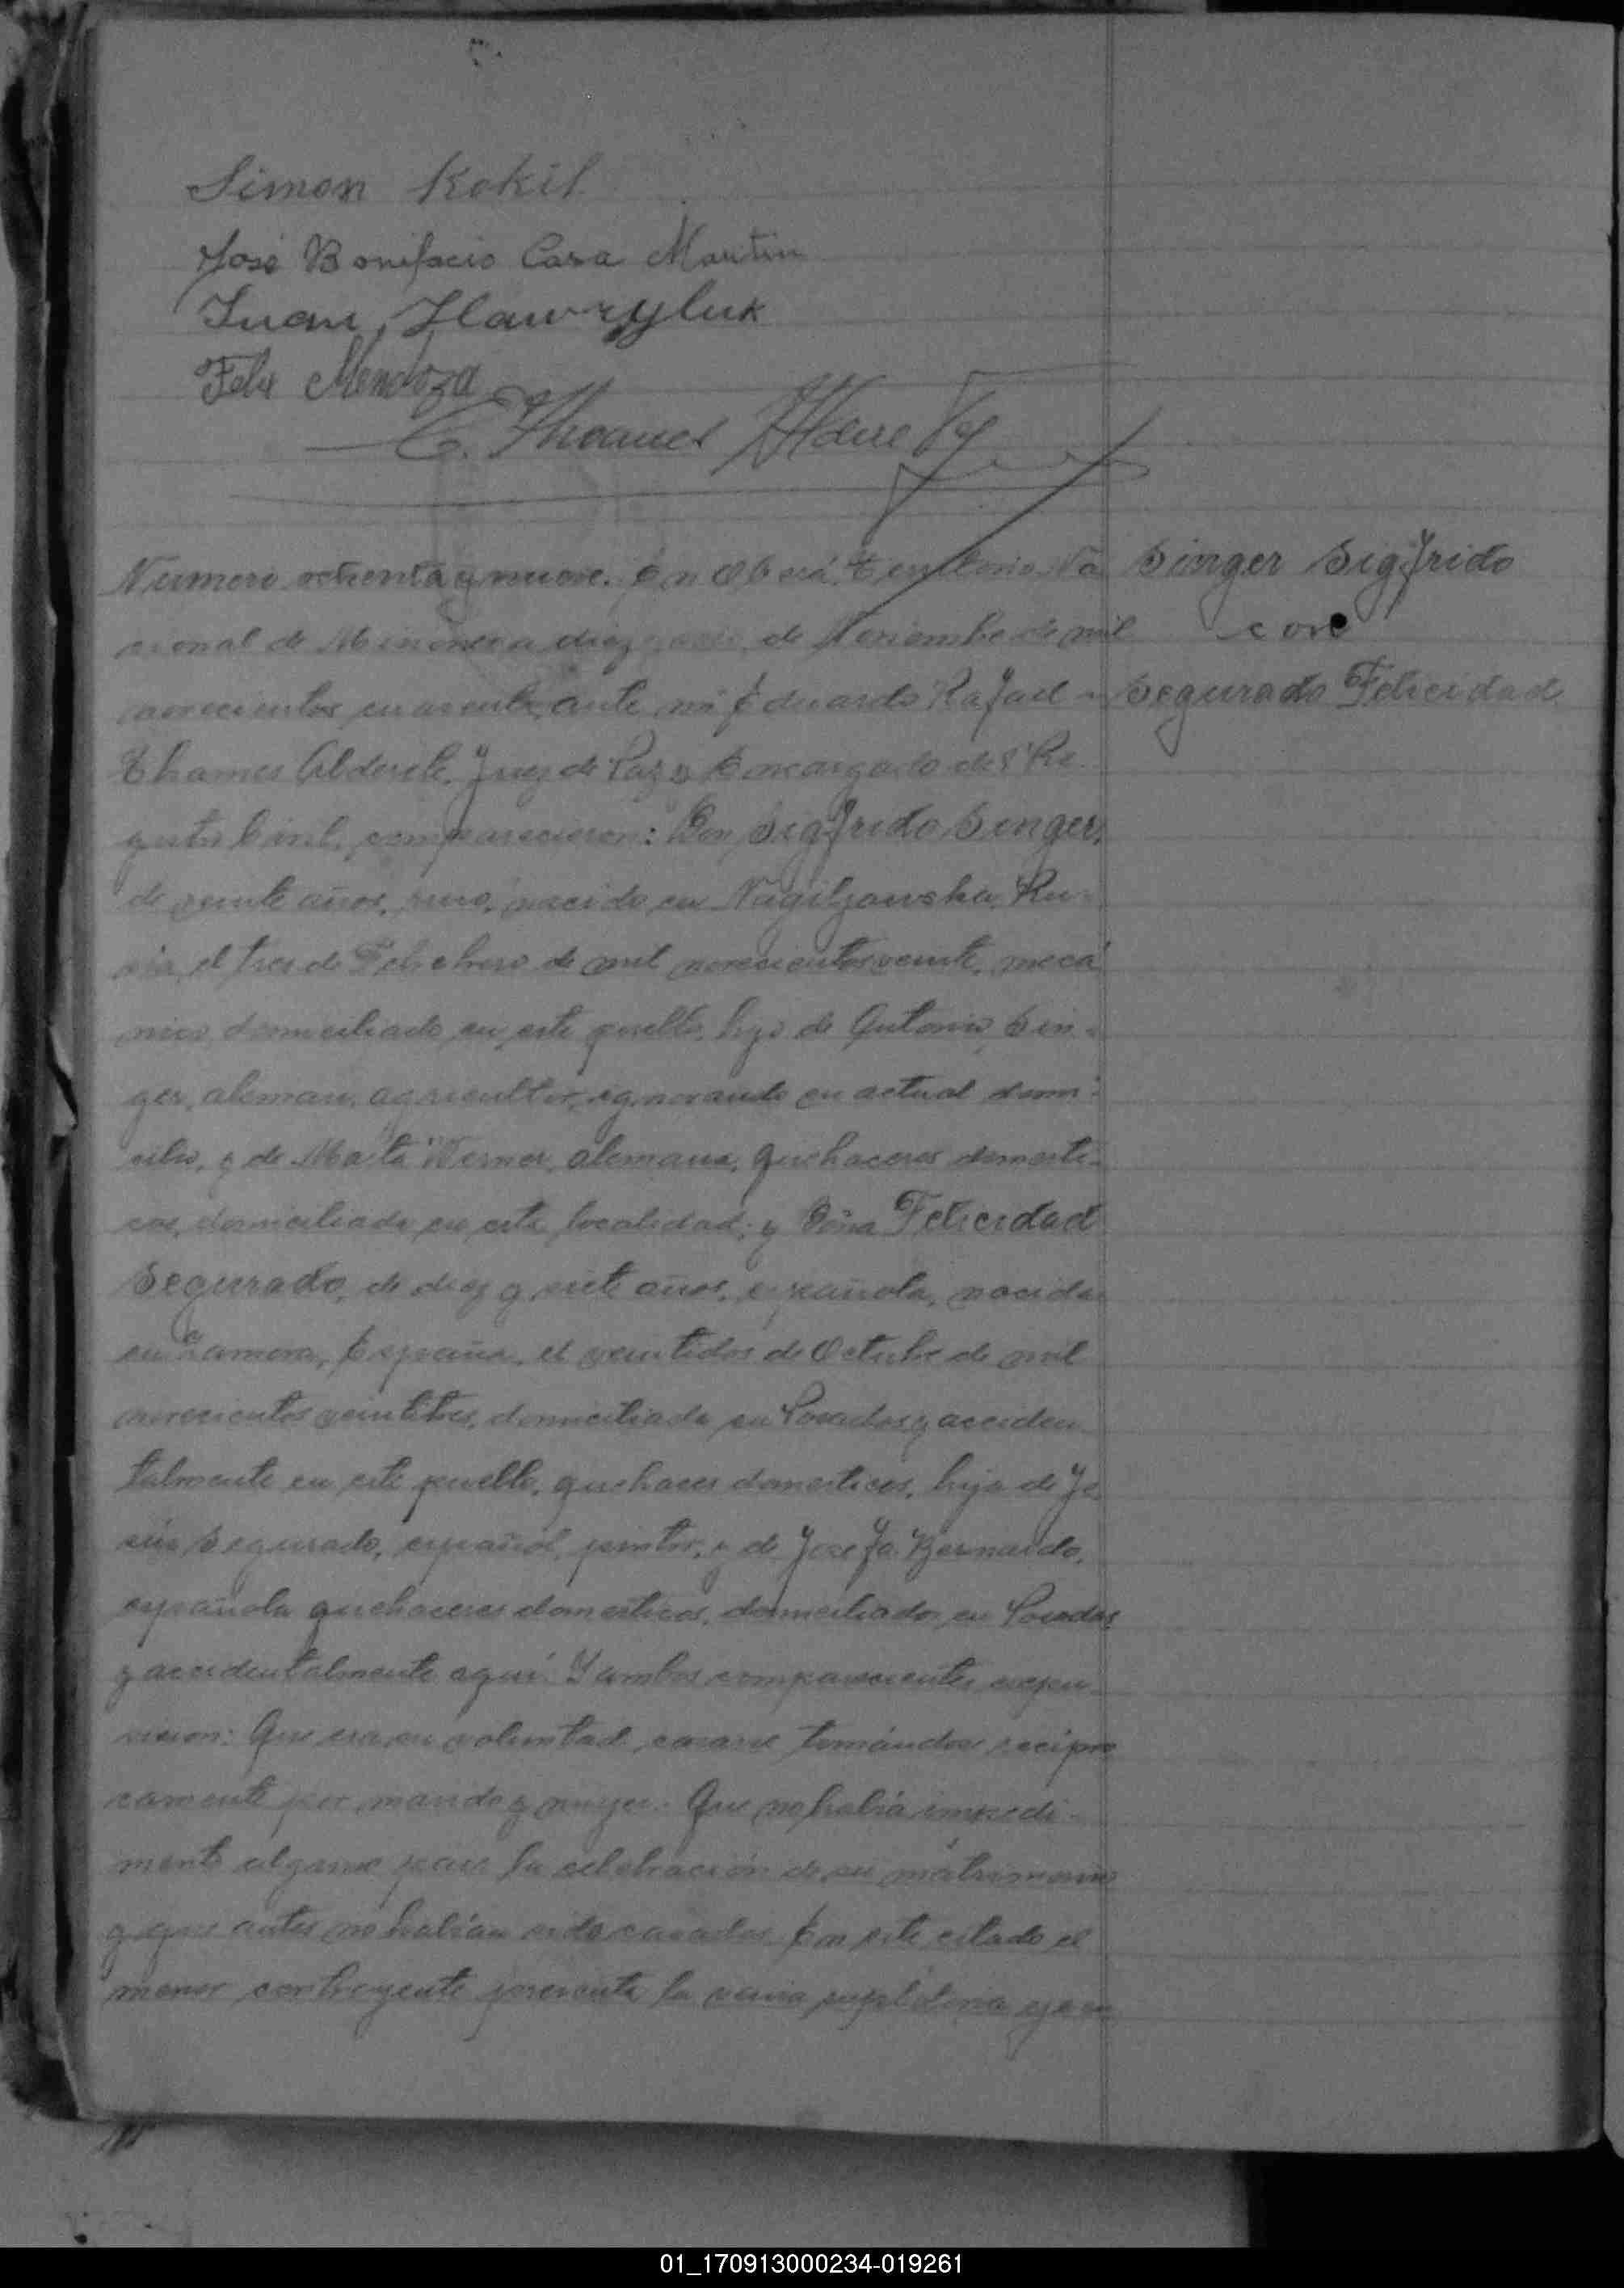 Simon Kokil
José Bonifacio Casa Martin
Juan Hawryluk
Felix Mendoza
E. Thames Alderete
Numero ochenta y nueve. En Oberá, Territorio Na
Singer Sigfrido
cional de Misiones a diez de Noviembre de mil
con
novecientos cuarenta, ante mi Eduardo Rafael
Segurado Felicidad
Thames Alderete, Juez de Paz y Encargado del Re-
gistro Civil, comparecieron: Don Sigfrido Singer,
de veinte años, ruso, nacido en Ru-
sia, el tres de Febrero de mil novecientos veinte, mecá
nico domiciliado en este pueblo, hijo de Antonio Sin-
ger, aleman, agricultor, ignorando su actual domi-
cilio, y de Marta Werner, alemana, quehaceres domesti-
cos, domiciliada en esta localidad; y Doña Felicidad
Segurado, de diez y siete años, española, nacida
en Zamora, España, el veintidos de Octubre de mil
novecientos veintitres, domiciliada en Posadas y acciden-
talmente en este pueblo, quehaceres domesticos, hija de Je
sús Segurado, español, pintor, y de Josefa Bernardo,
española quehaceres domesticos, domiciliados en Posadas
y accidentalmente aquí. Y ambos comparecientes expu-
sieron: Que era su voluntad casarse tomándose recipro
camente por marido y mujer. Que no había impedi-
mento alguno para la celebración de su matrimonio
y que antes no habían sido casados. En este estado el
menor contrayente presenta la venia supletoria
01_170913000234-019261